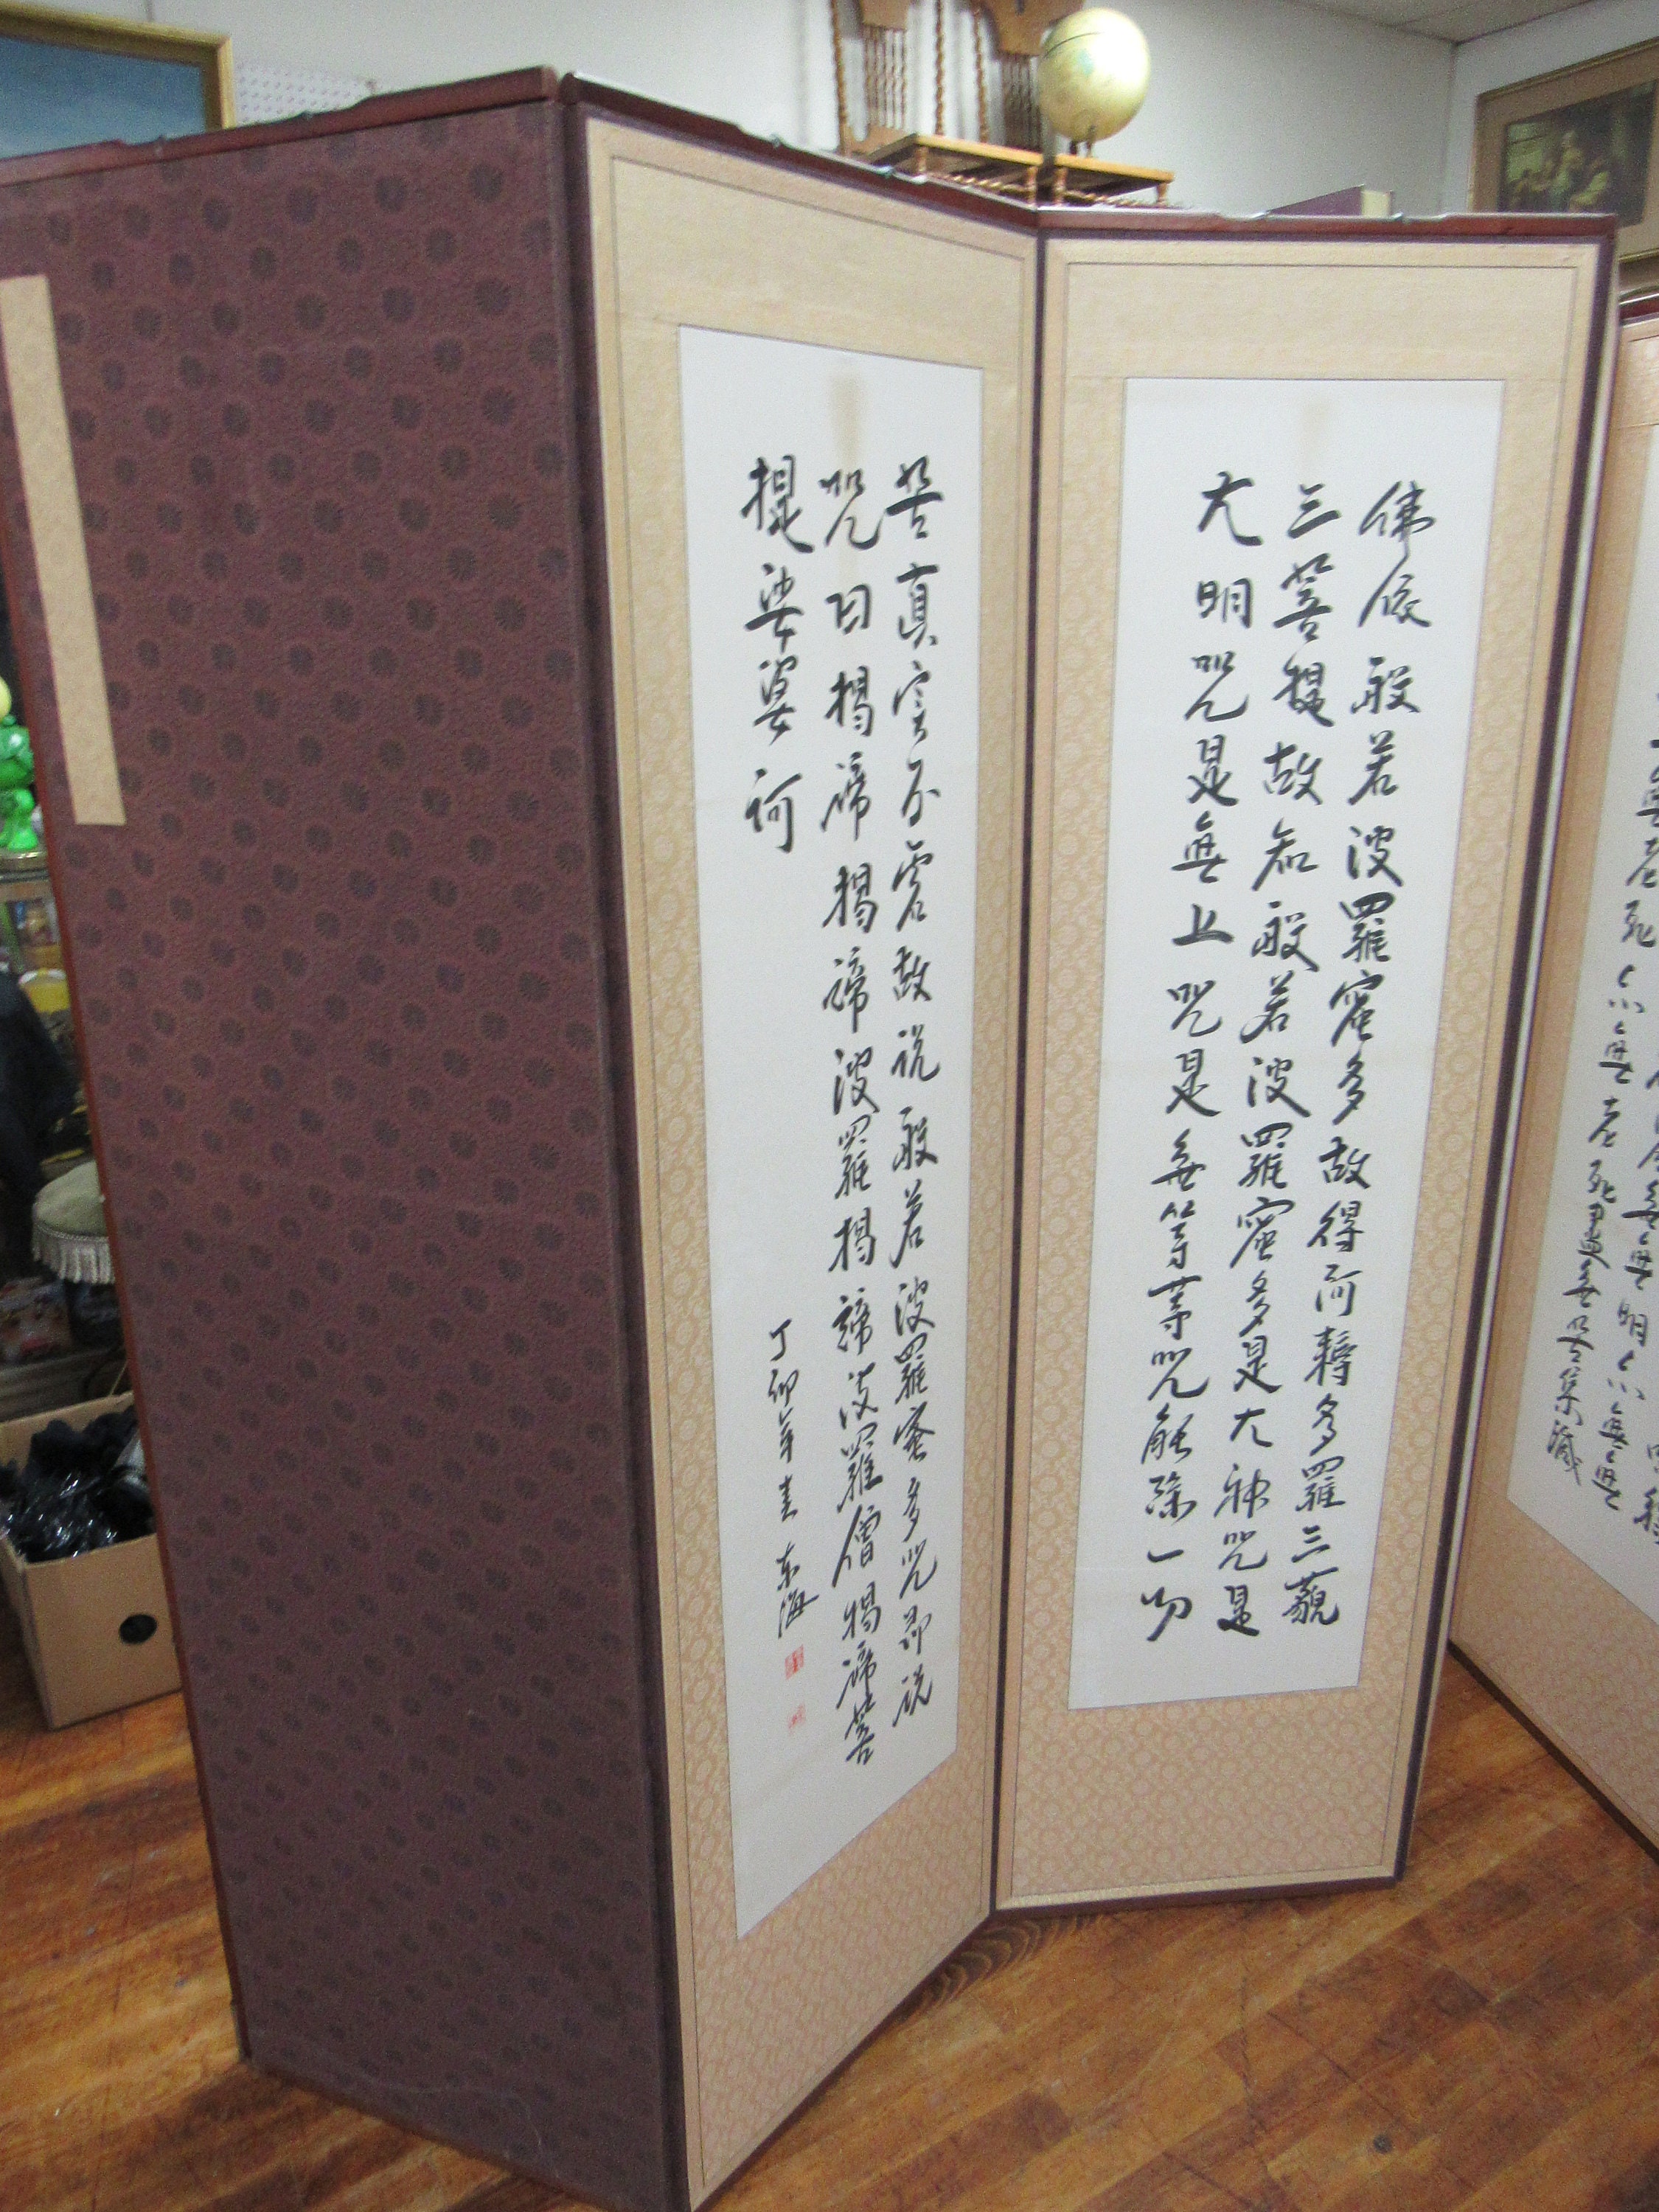 無無明亦無無
無老死亦無老死盡無苦集滅
佛依般若波羅蜜多故得阿耨多羅三藐
三菩提故知般若波羅蜜多是大神咒是
大明咒是無上咒是無等等咒能除一切
苦真實不虛故說般若波羅蜜多咒即說
咒曰揭諦揭諦波羅揭諦波羅僧揭諦菩
提娑婆訶
丁卯年春 東海